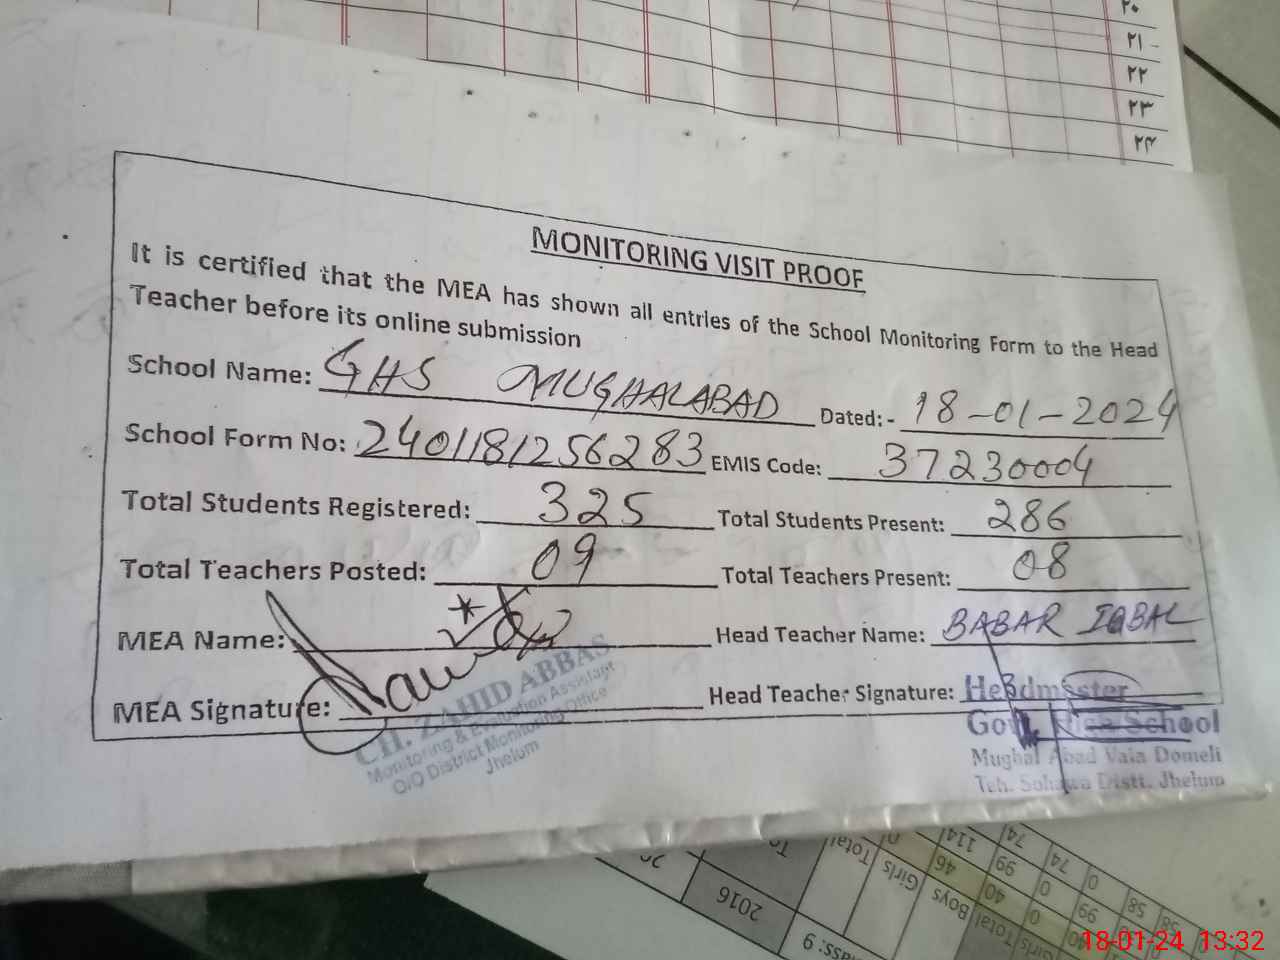 ۲۰
۲۱
۲۲
۲۳
۲۴
MONITORING VISIT PROOF
It is certified that the MEA has shown all entries of the School Monitoring Form to the Head
Teacher before its online submission
School Name: GHS MUGHALABAD Dated:- 18-01-2024
School Form No: 2401181256283 EMIS Code: 37230004
Total Students Registered: 325 Total Students Present: 286
Total Teachers Posted: 09 Total Teachers Present: 08
MEA Name: Head Teacher Name: BABAR IQBAL
MEA Signature: Head Teacher Signature:
CH. ZAHID ABBAS
Monitoring & Evaluation Assistant
O/O District Monitoring Office
Jhelum
Headmaster
Govt. High School
Mughal Abad Vaia Domeli
Teh. Sohawa Distt. Jhelum
2016
Total
Girls
Boys
Total
Girls
114
46
40
0
74
99
0
40
74
0
99
58
58
18-01-24 13:32